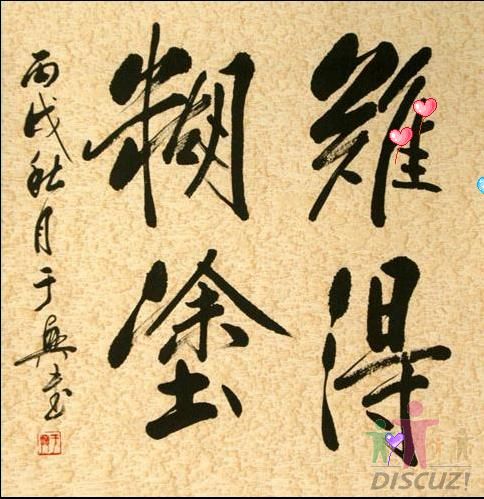 難得
糊塗
丙戌秋月于興臺
DISCUZ!